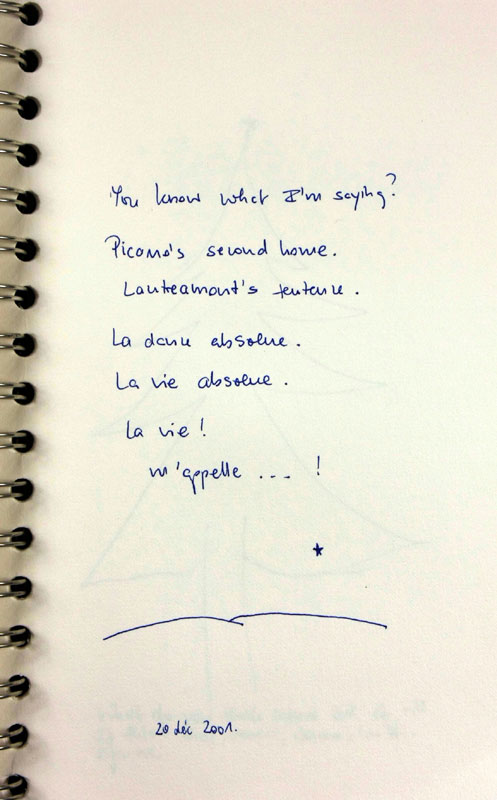 You know what I'm saying?
Picasso's second home.
Lautreamont's sentence.
La danse absolue.
La vie absolue.
La vie !
m'appelle ... !
20 déc 2001.